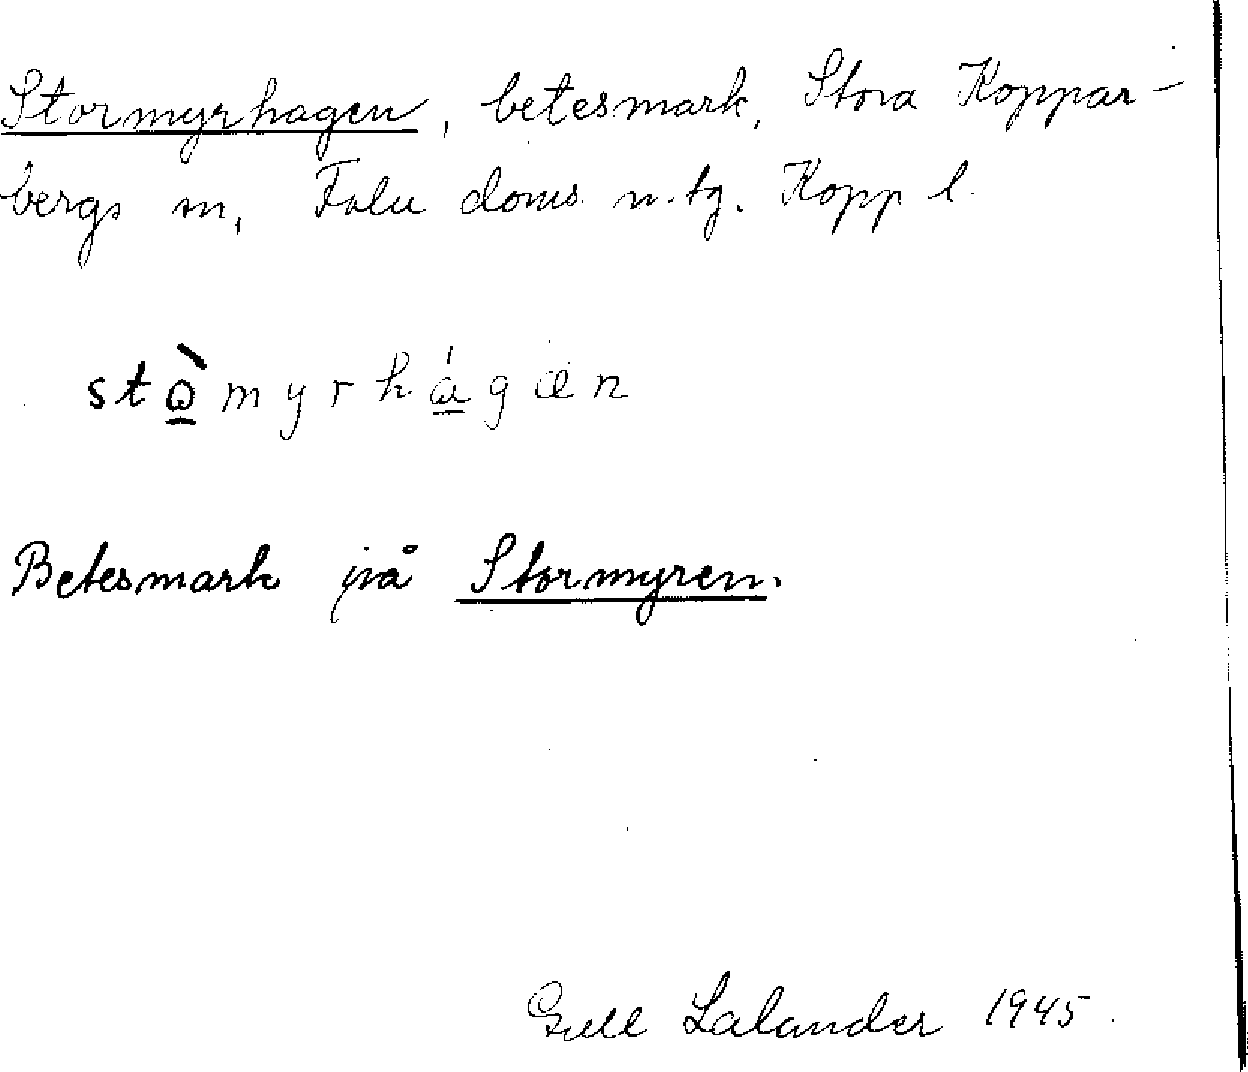 Stormyrhagen, betesmark, Stora Koppar-
bergs sn, Falu doms. n. tg. Kopp l.
stò̲myrhá̲gæn
Betesmark på Stormyren.
Gull Lalander 1945.